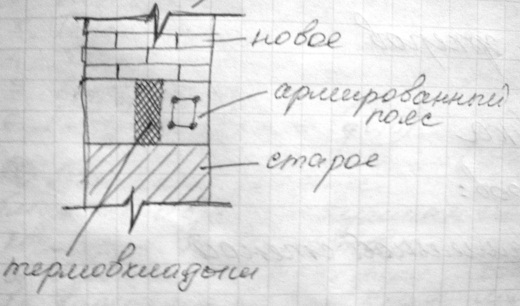 новое
армированный
пояс
старое
термовкладыш